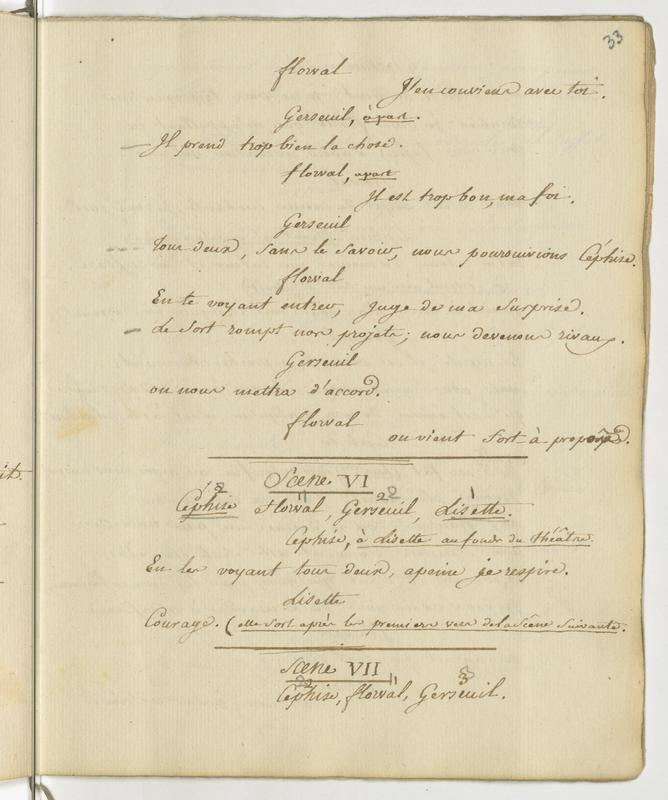 33
florval
J'en conviens avec toi.
Gerseuil, àpart.
Il prend trop bien la chose.
florval, apart
Il est trop bon, ma foi.
Gerseuil
tous deux, sans le savoir, nous poursuivions Céphise.
florval
En te voyant entrer, juge de ma surprise.
Le sort rompt nos projets; nous devenons rivaux.
Gerseuil
on nous mettra d'accord.
florval
on vient fort à propos.
Scene VI
Céphise florval, Gerseuil, Lisette.
Cephise, à Lisette au fond du théâtre.
En les voyant tous deux, apeine je respire.
Lisette
Courage. (elle sort après les premiers vers de la Scène Suivante.
Scene VII
Céphise, florval, Gerseuil.